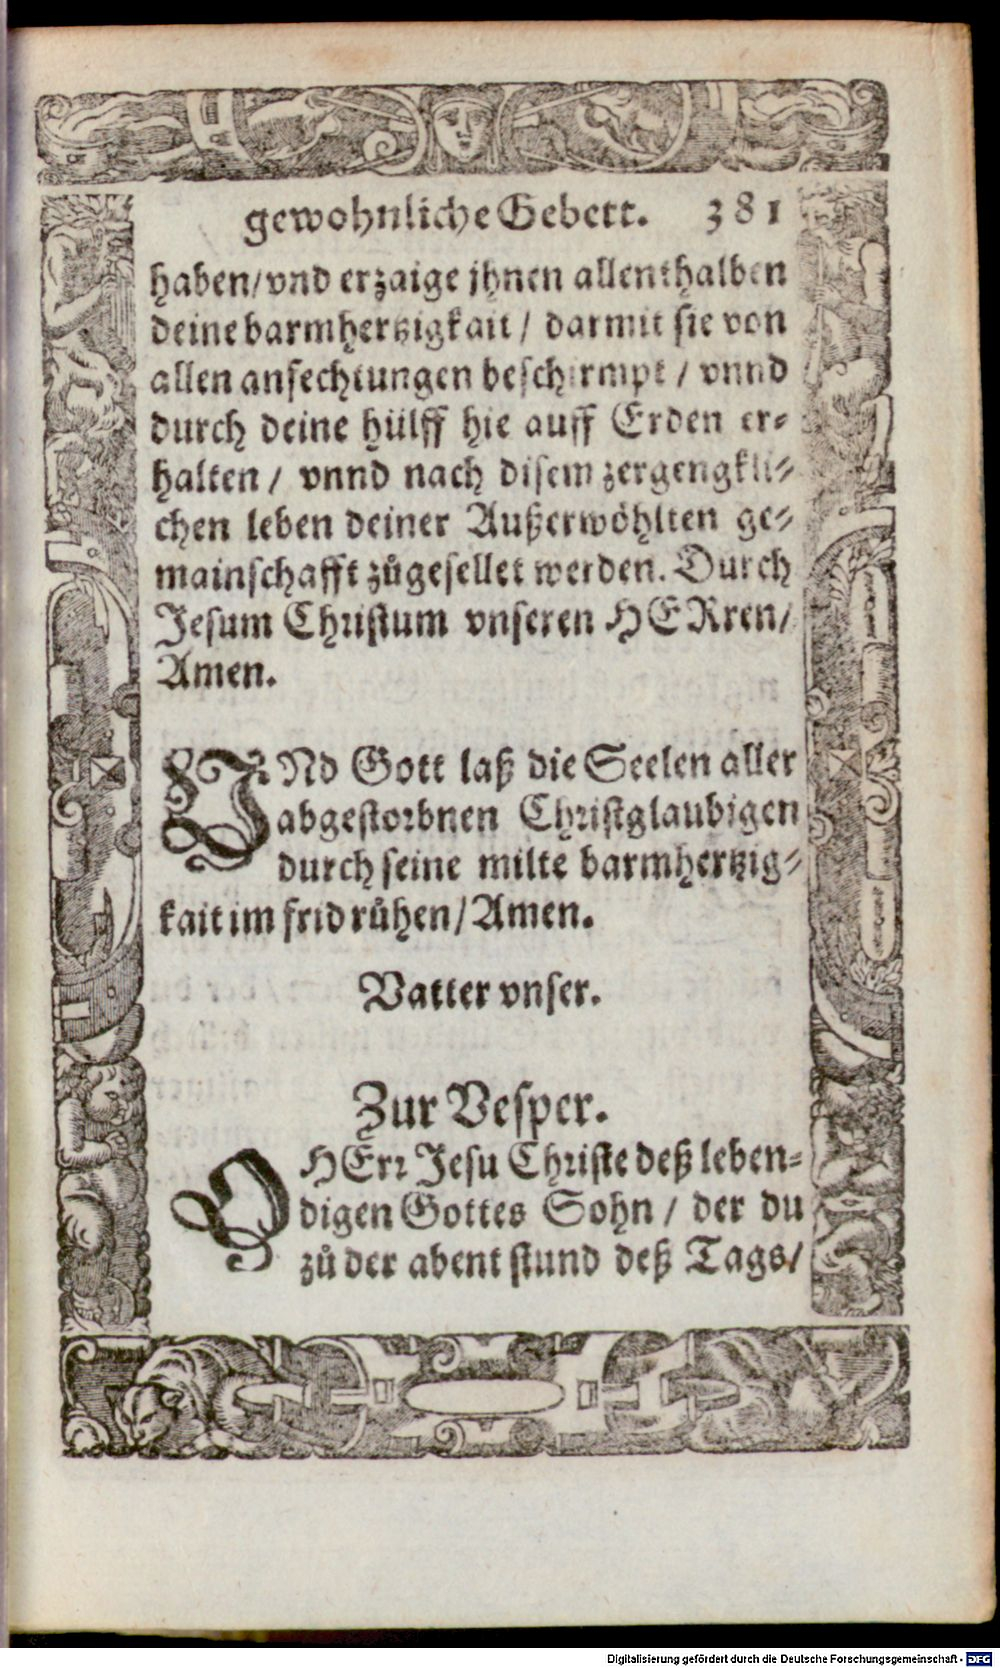 gewohnliche Gebett. 381
haben/ vnd erzaige jhnen allenthalben
deine barmhertzigkait / darmit sie von
allen anfechtungen beschirmpt / vnnd
durch deine hülff hie auff Erden er-
halten / vnnd nach disem zergengkli-
chen leben deiner Außerwöhlten ge-
mainschafft zůgesellet werden. Durch
Jesum Christum vnseren HERren/
Amen.
VNd Gott laß die Seelen aller
abgestorbnen Christglaubigen
durch seine milte barmhertzig-
kait im frid růhen/ Amen.
Vatter vnser.
Zur Vesper.
O HErr Jesu Christe deß leben-
digen Gottes Sohn / der du
zů der abent stund deß Tags/
Digitalisierung gefördert durch die Deutsche Forschungsgemeinschaft - DFG